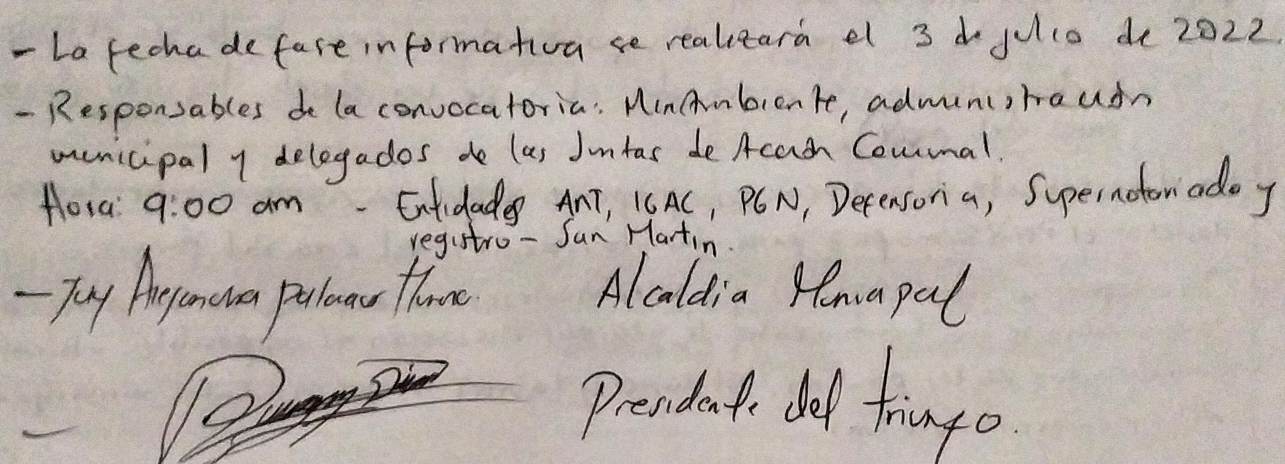 - La fecha de fase informativa se realizará el 3 de julio de 2022.
- Responsables de la convocatoria: MinAmbiente, administración
municipal y delegados de las Juntas de Acción Comunal.
Hora: 9:00 am - Entidades ANT, IGAC, PGN, Defensoria, Supernotoriado y
registro - San Martin.
- Alejandra Alcaldia Municipal
- Presidente del triunfo.